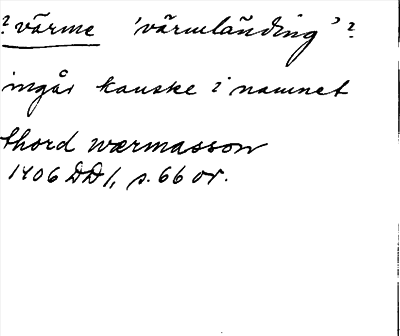 ? värme 'värmlänning' ?
ingår kanske i namnet
thord wærmasson
1406 DD 1, s. 66 or.